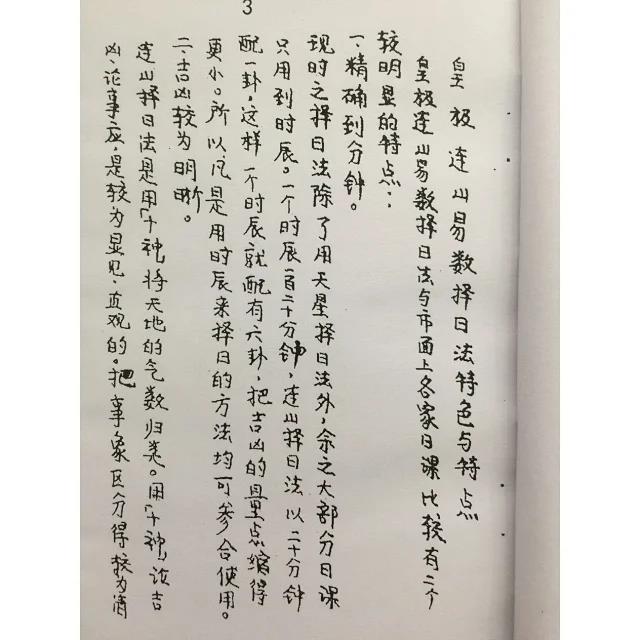 3
皇极连山易数择日法特色与特点
皇极连山易数择日法与市面上各家日课比较有二个
较明显的特点：
一、精确到分钟。
现时之择日法除了用天星择日法外，余之大部分日课
只用到时辰。一个时辰一百二十分钟，连山择日法以二十分钟
配一卦，这样一个时辰就配有六卦，把吉凶的量点缩得
更小。所以凡是用时辰来择日的方法均可参合使用。
二、吉凶较为明晰。
连山择日法是用「十神」将天地的气数归类。用「十神」论吉
凶、论事应，是较为显见、直观的。把事象区分得较为清